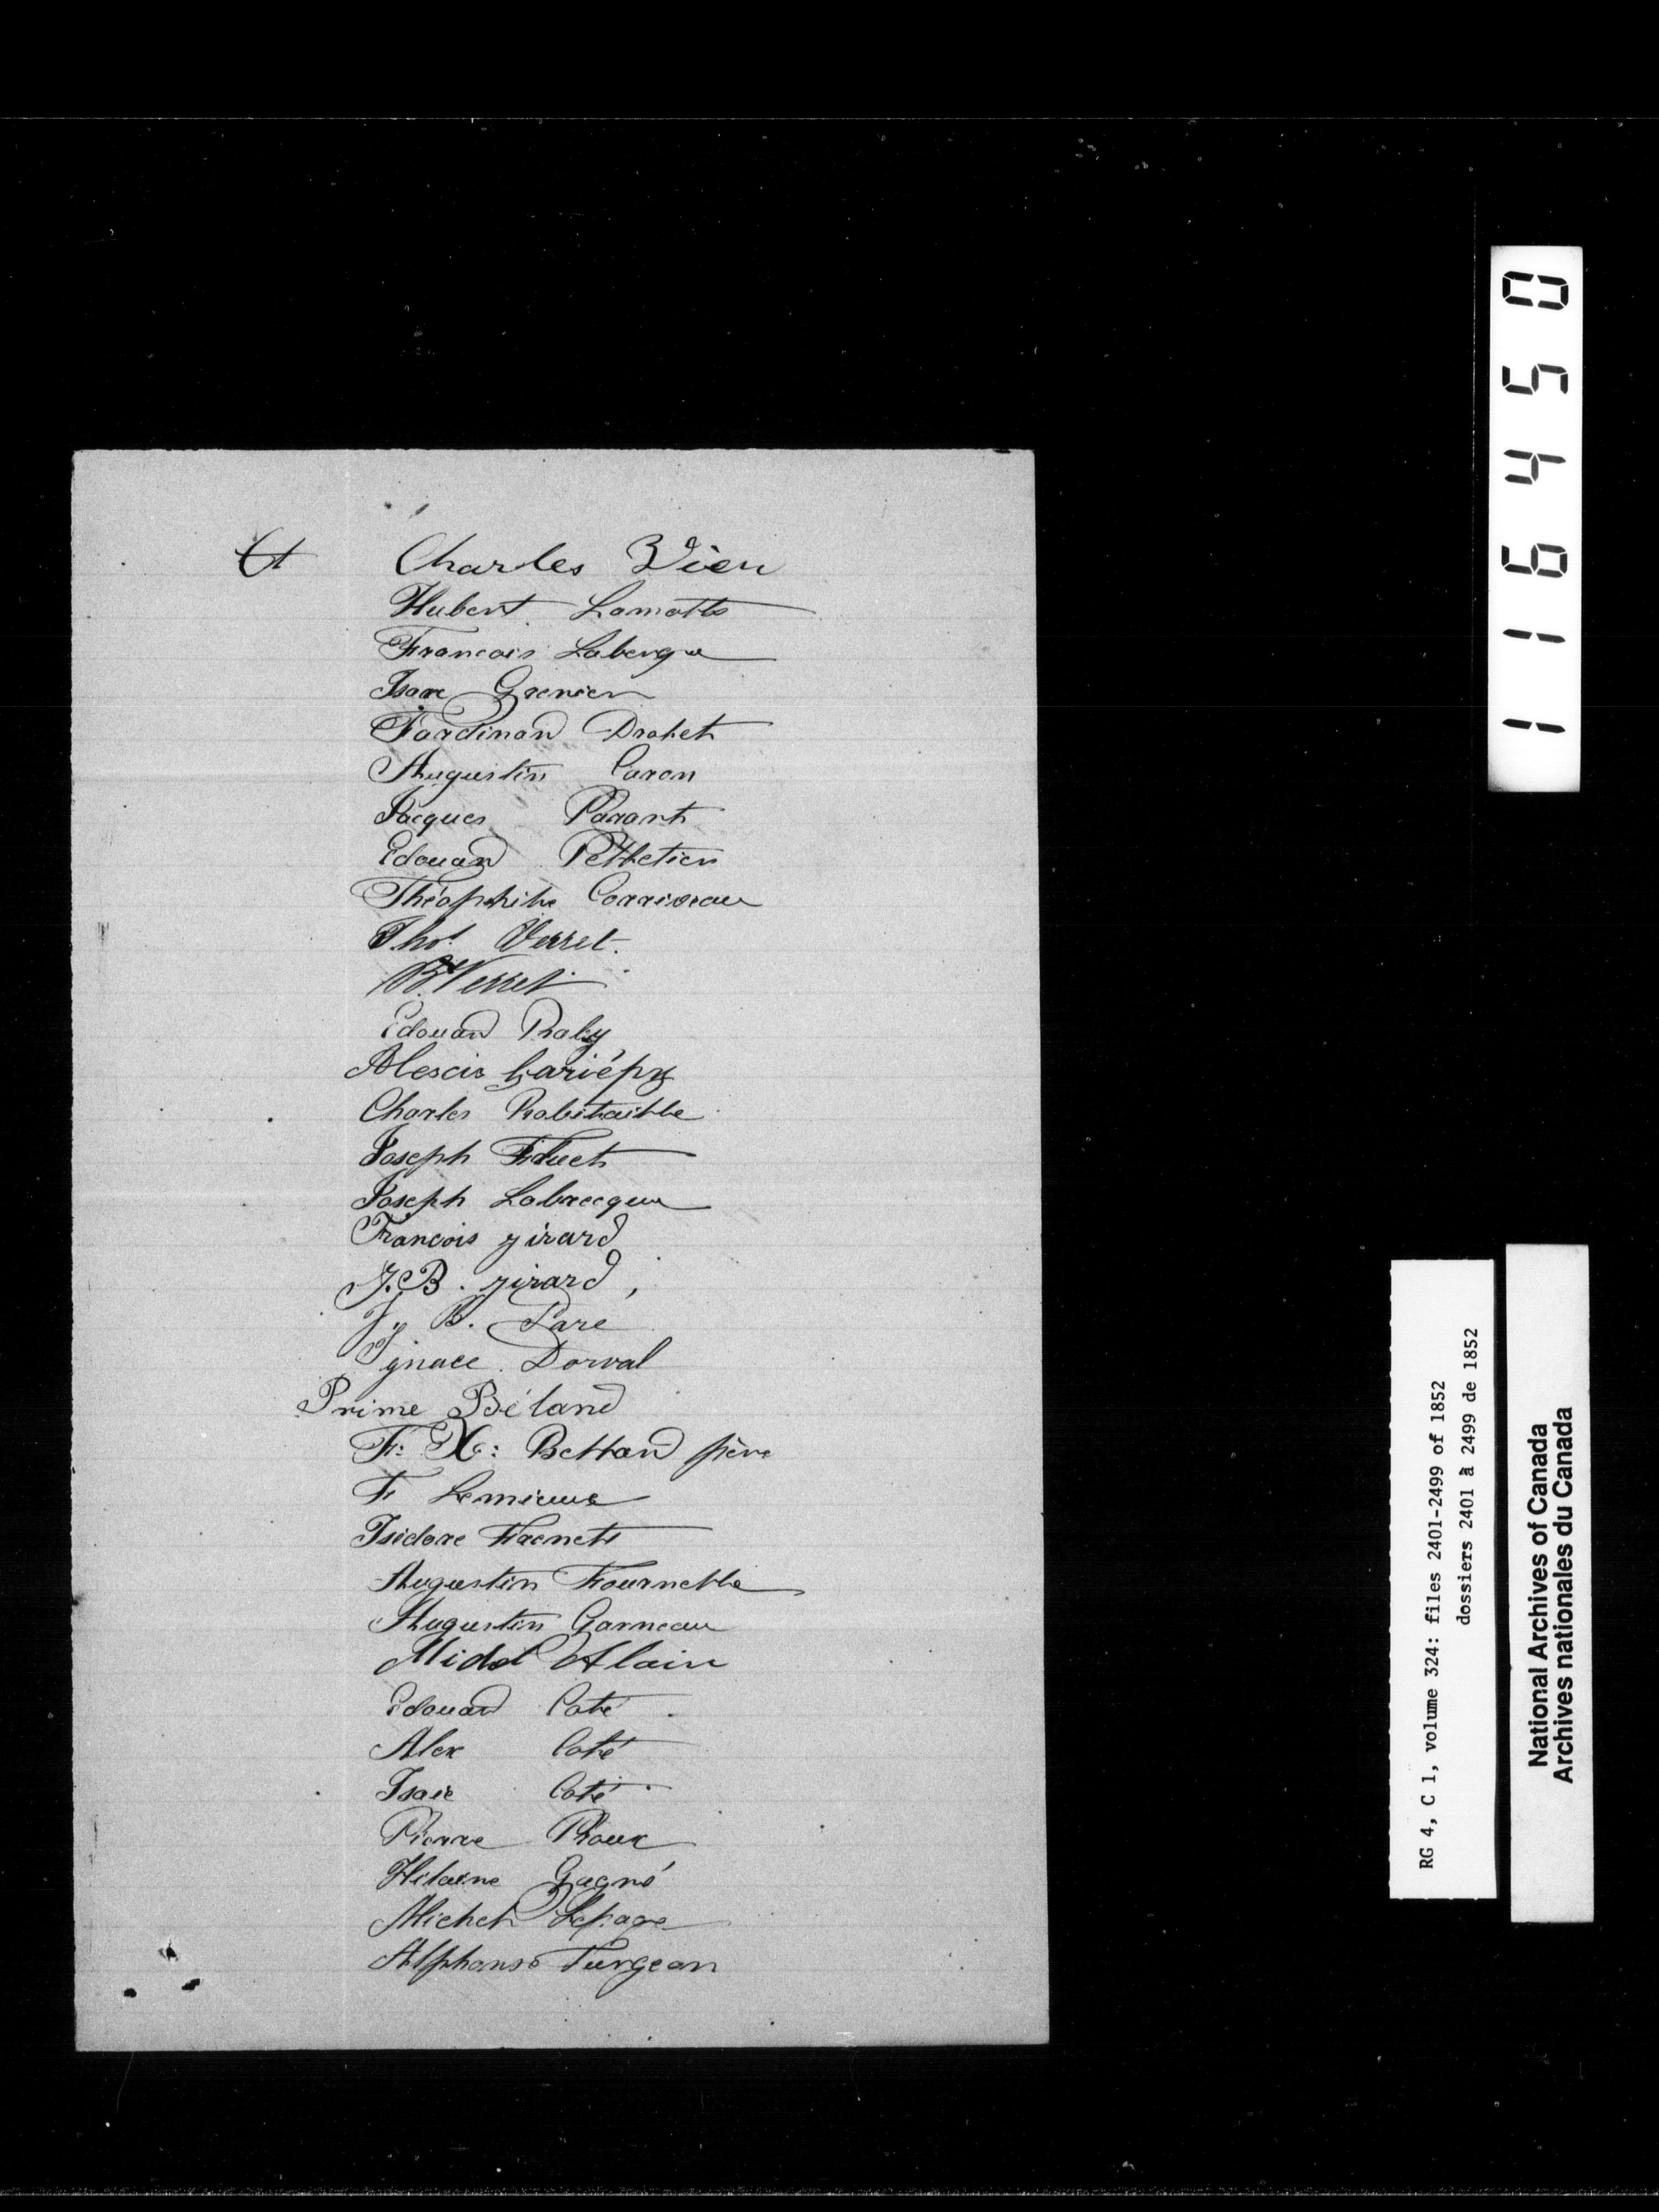 Ct Charles Vien
Hubert Lamotte
Francois Laberge
Isare Grenier
Ferdinand Drolet
Augustin Caron
Jacques Parant
Edouard Pelletier
Théophile Corriveau
Thos Verret.
B Verret
Edouard Raby
Alescis Gariépy
Charles Robitaille
Joseph Huet
Joseph Labrecque
Francois girard
J. B. girard,
J B. Pare
Ignace Dorval
Prime Béland
F: X: Belland père
F Lemieux
Isidore Frenet
Augustin Fournelle
Augustin Garneau
Midol Alain
Edouard Coté
Alex Coté
Isaie Coté
Pierre Roux
Hilaire Gagné
Michel Lepage
Alphonse Turgeon
116450
RG 4, C 1, volume 324: files 2401-2499 of 1852
dossiers 2401 à 2499 de 1852
National Archives of Canada
Archives nationales du Canada